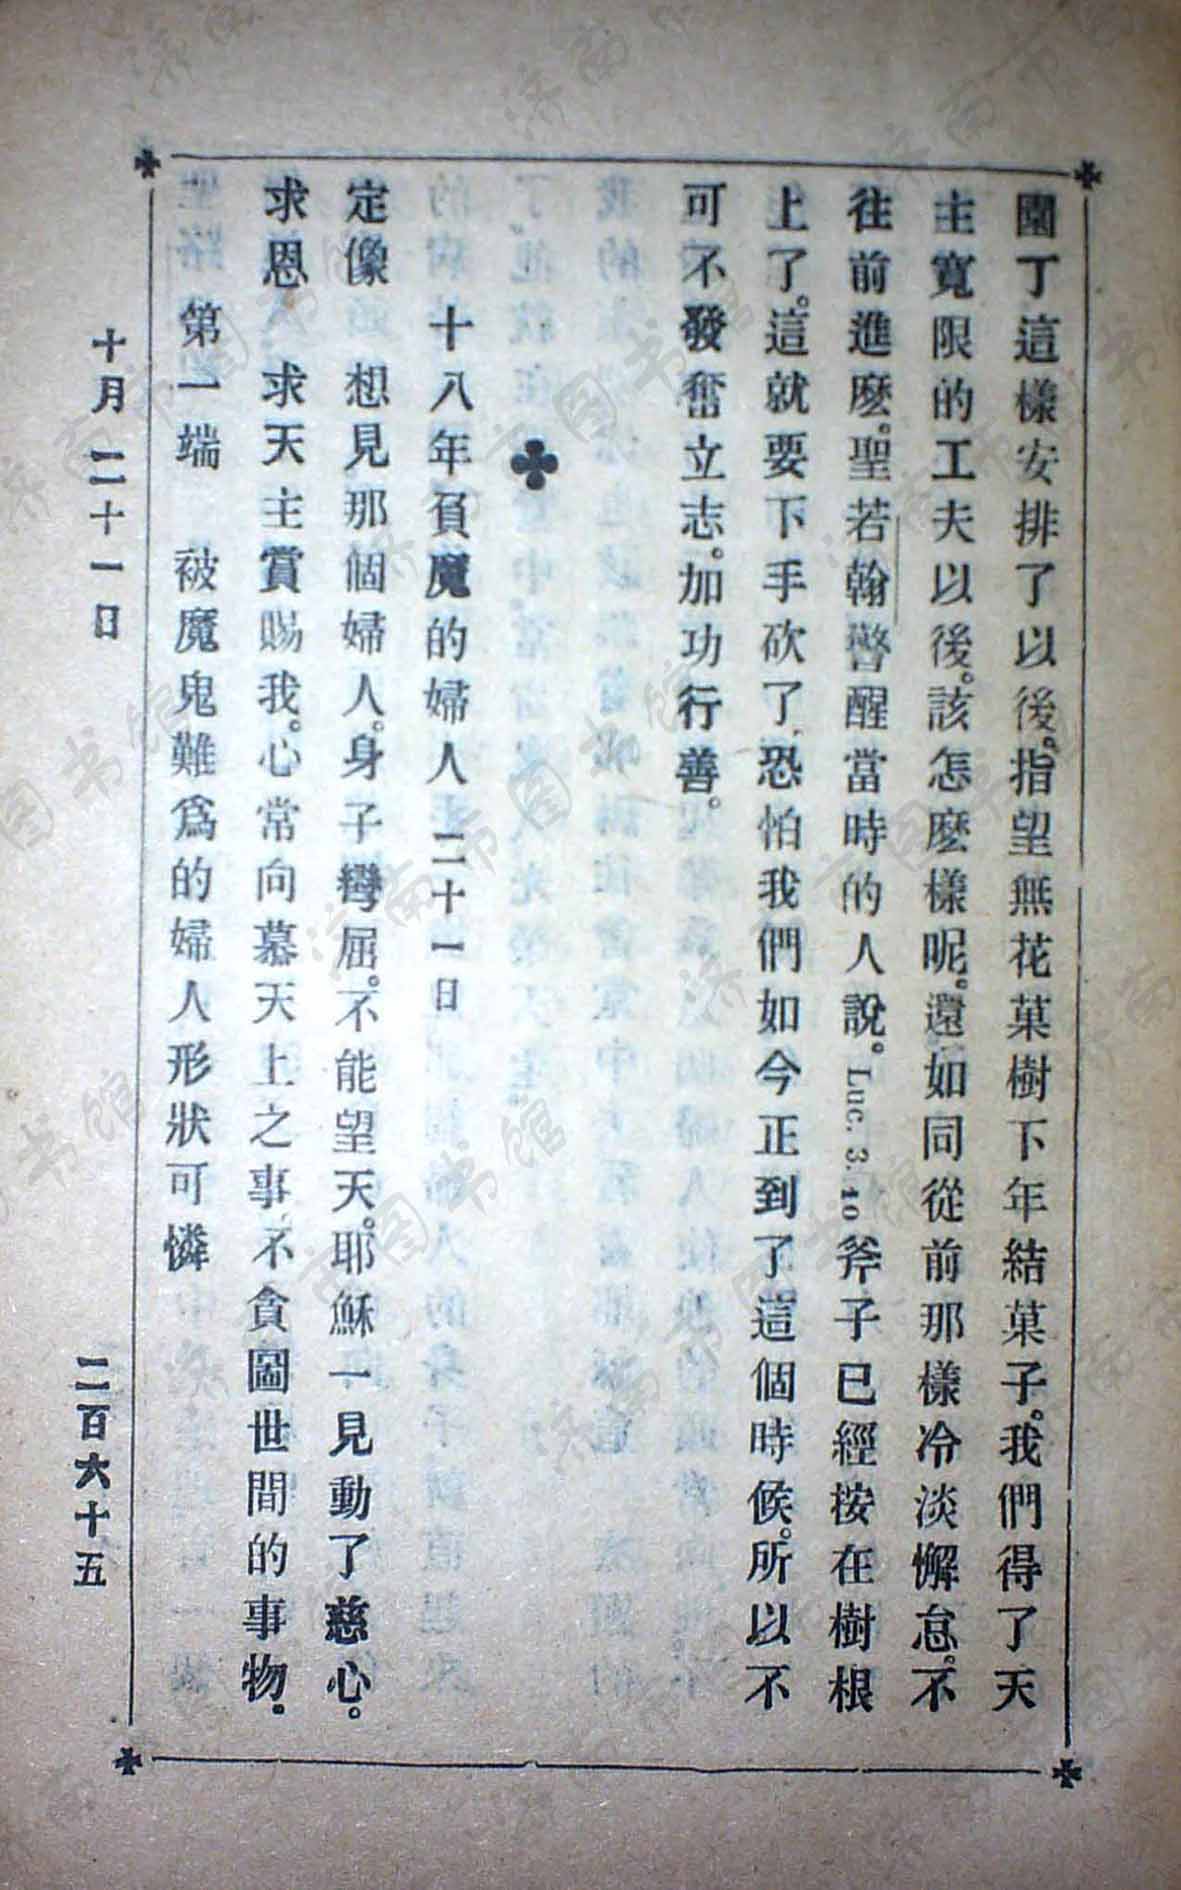 園丁這樣安排了以後。指望無花菓樹下年結菓子。我們得了天
主寬限的工夫以後。該怎麽樣呢。還如同從前那樣冷淡懈怠。不
往前進麽。聖若翰警醒當時的人說。Luc. 3. 10 斧子已經按在樹根
上了。這就要下手砍了、恐怕我們如今正到了這個時候。所以不
可不發奮立志。加功行善。
十八年負魔的婦人 二十一日
定像 想見那個婦人。身子彎屈。不能望天。耶穌一見動了慈心。
求恩 求天主賞賜我。心常向慕天上之事、不貪圖世間的事物。
第一端 被魔鬼難爲的婦人形狀可憐
十月二十一日 二百六十五
济南市图书馆